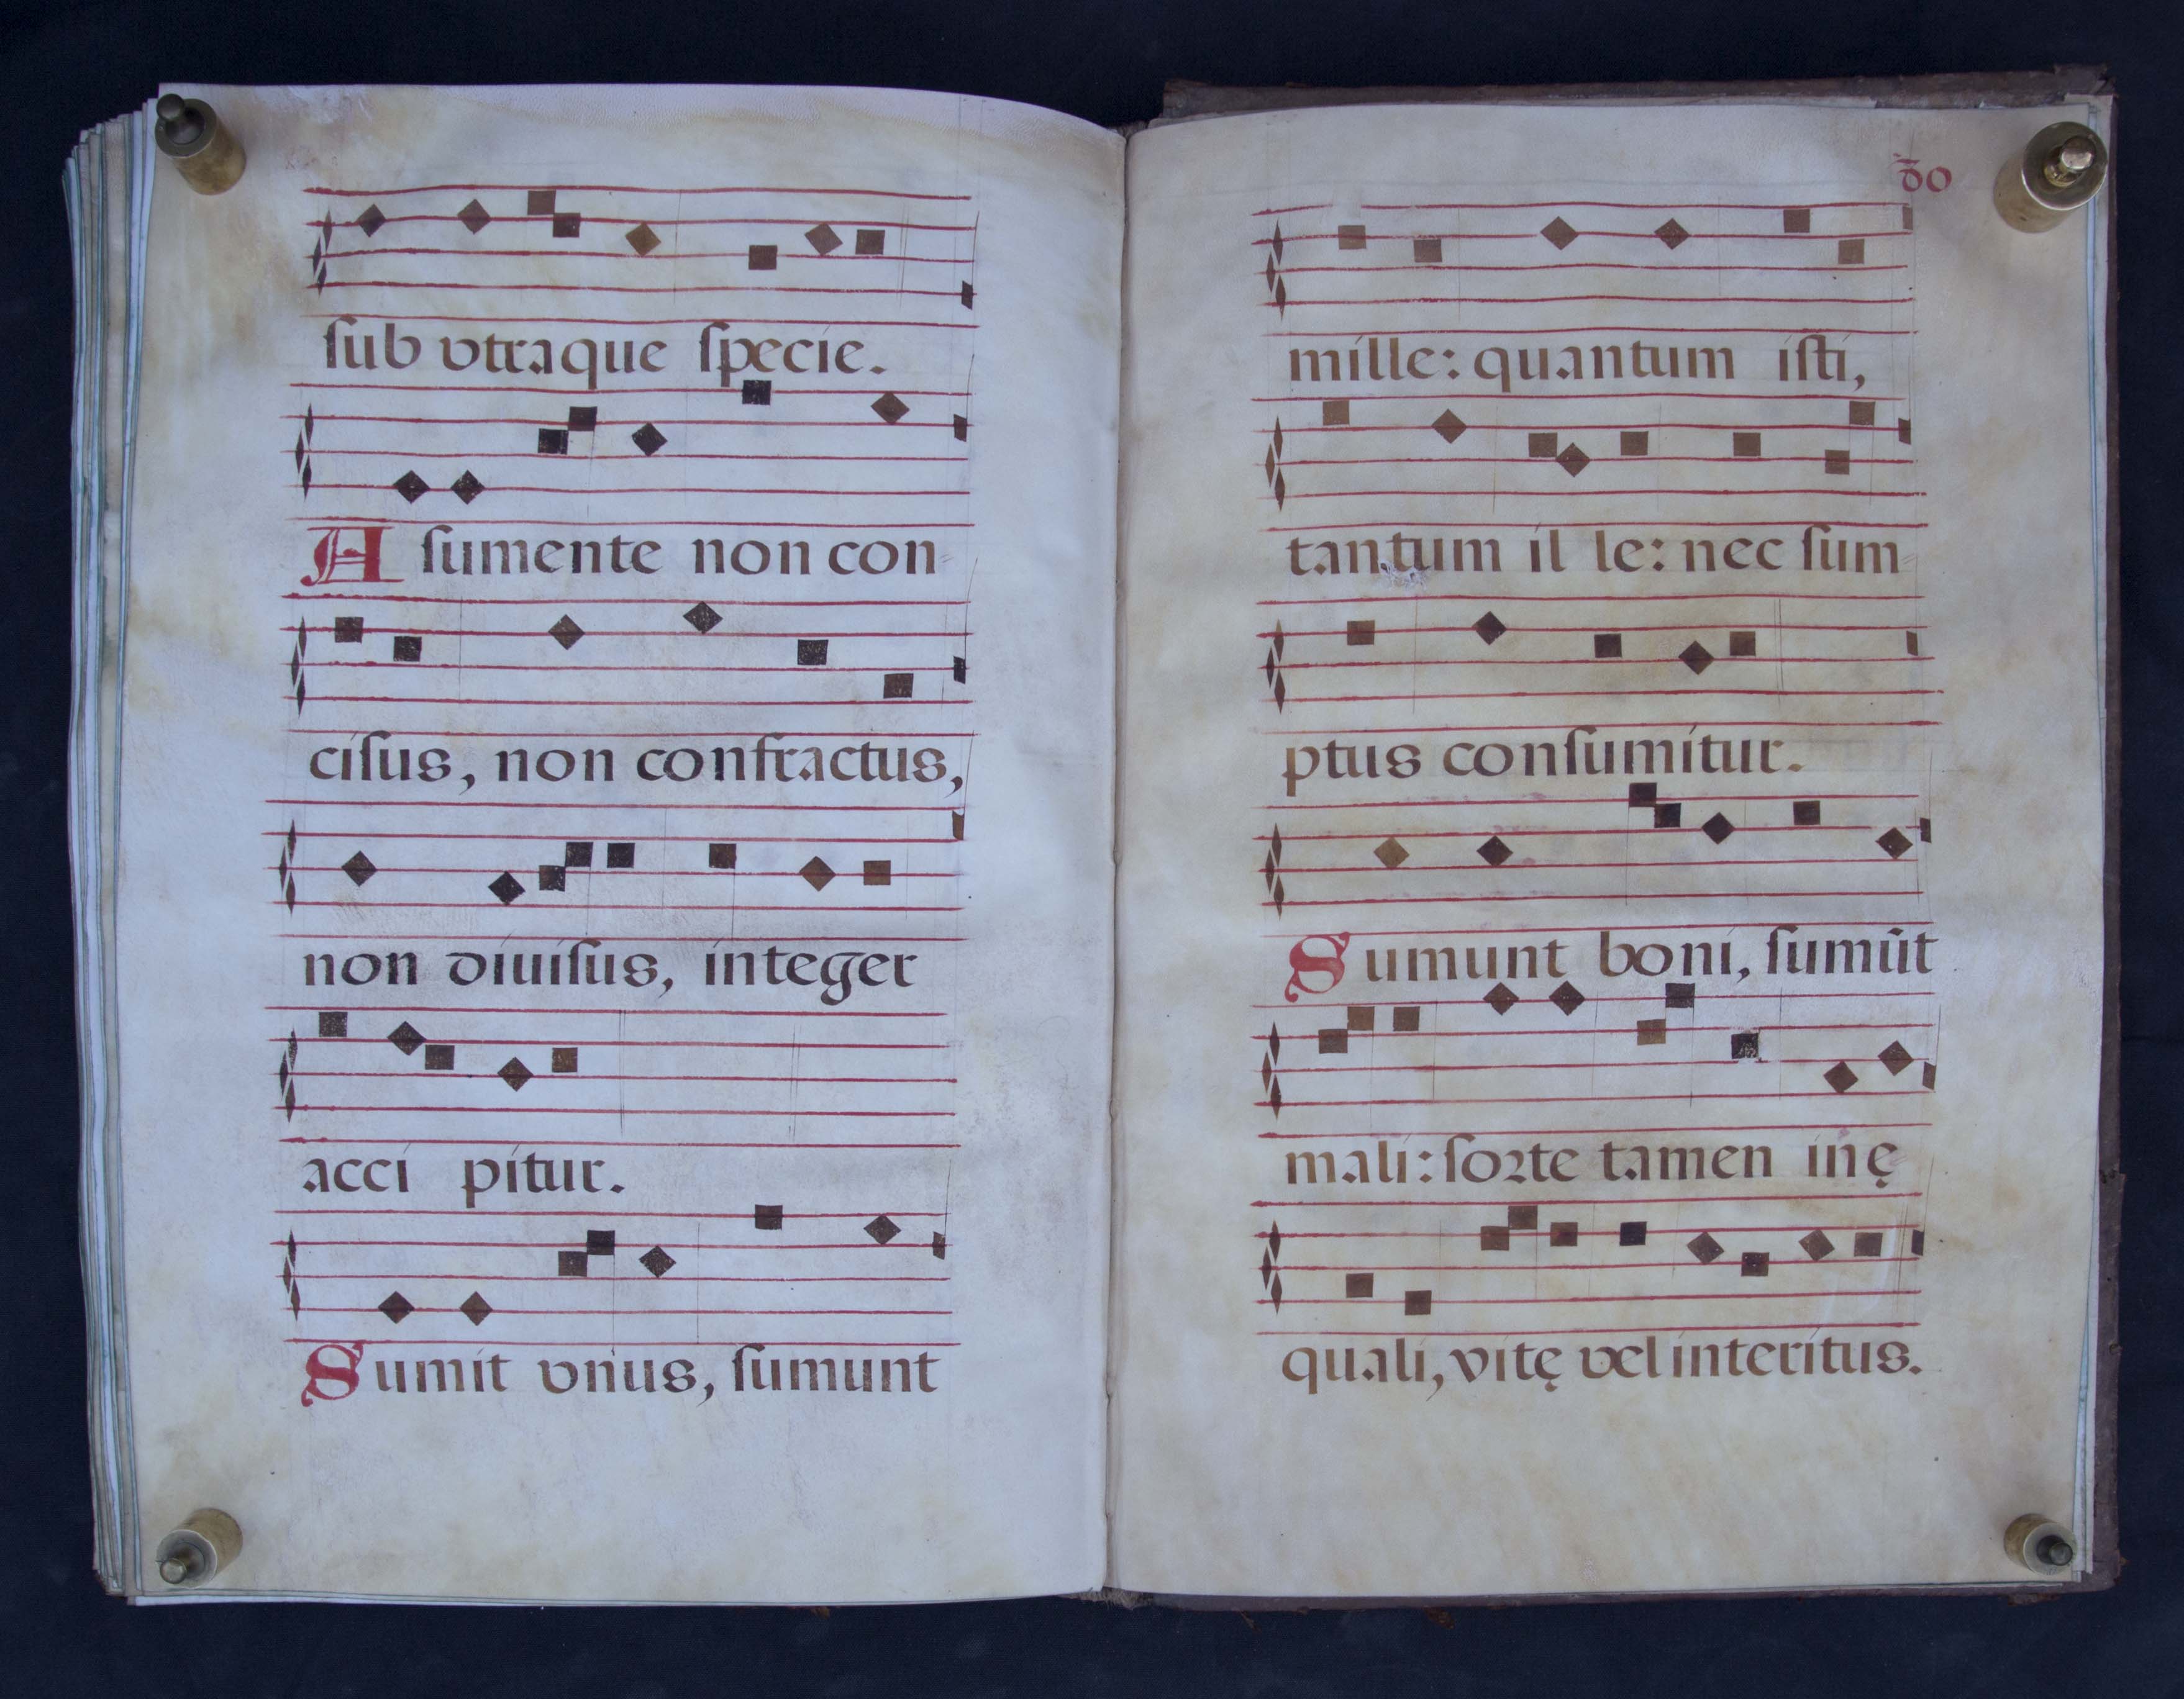 ſub vtraque ſpecie.
A ſumente non con-
ciſus, non confractus,
non diuiſus, integer
acci pitur.
Sumit vnus, ſumunt
mille: quantum iſti,
tantum il le: nec ſum-
ptus conſumitur.
Sumunt boni, ſumūt
mali: ſorte tamen inę
quali, vitę vel interitus.